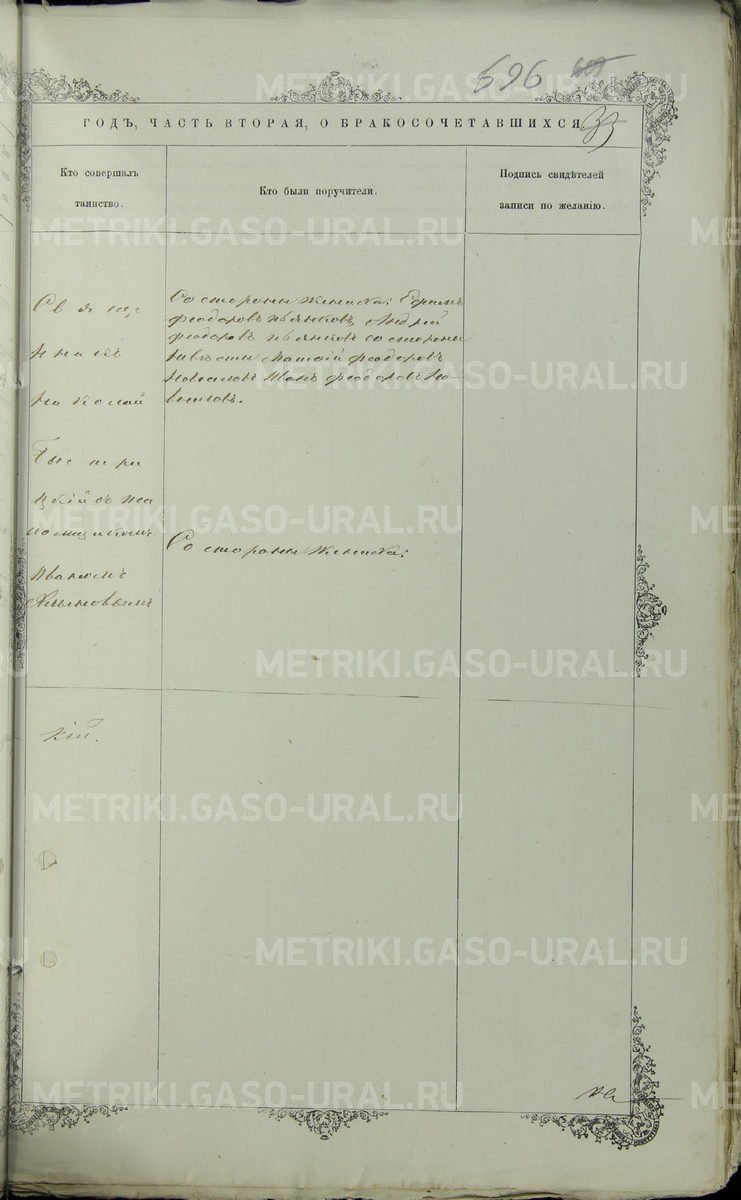 596
ГОДЪ, ЧАСТЬ ВТОРАЯ, О БРАКОСОЧЕТАВШИХСЯ
33
Кто совершалъ
таинство.
Кто были поручители.
Подпись свидѣтелей
записи по желанію.
Свяще
нникъ
Николай
цкій съ псa
ломщикомъ
Иваномъ
Со стороны жениха: Ефимъ
Феодоровъ Пьянковъ, Андрей
Феодоровъ Пьянковъ со стороны
невѣсты Матвій Феодоровъ
Новосиловъ Иванъ Феодоровъ Но-
восиловъ.
Со стороны жениха:
кій.
METRIKI.GASO-URAL.RU